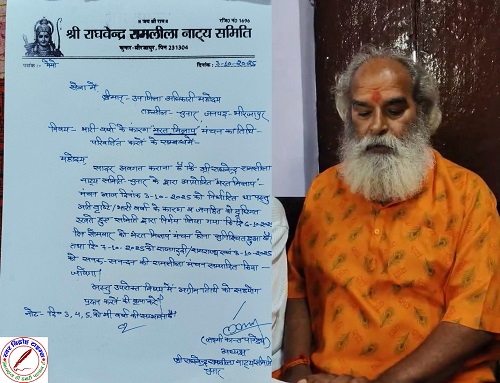 ॥ जय श्री राम ॥
रजि० नं० 1696
श्री राघवेन्द्र रामलीला नाट्य समिति
चुनार-मीरजापुर, पिन 231304
पत्रांक: मेमो
दिनांक: 3-10-2025
सेवा में
श्रीमान् - उपजिला अधिकारी महोदय
तहसील - चुनार, जनपद - मीरजापुर
विषय- भारी वर्षा के कारण भरत मिलाप मंचन का तिथि-
परिवर्तित करने के सम्बन्ध में-
महोदय
सादर अवगत कराना है कि श्री राघवेन्द्र रामलीला
नाट्य समिति चुनार के द्वारा आयोजित भरत मिलाप
मंचन आज दिनांक 3-10-2025 को निर्धारित था परन्तु
अति वृष्टि/भारी वर्षा के कारण व जनहित को दृष्टिगत
रखते हुए समिति द्वारा निर्णय लिया गया कि दि 6-10-2025
दिन सोमवार को भरत मिलाप मंचन होना सुनिश्चित हुआ है
तथा दि 7-10-2025 को राजगद्दी
की रामलीला मंचन सम्पादित किया-
जायेगा।
अस्तु उपरोक्त विषय में अग्रीम तिथि को सहयोग
प्रदान करने की कृपा करें।
नोट- दि० 3, 4, 5 को भी वर्षा की सम्भावना है
अध्यक्ष
श्री राघवेन्द्र रामलीला नाट्य समिति
चुनार